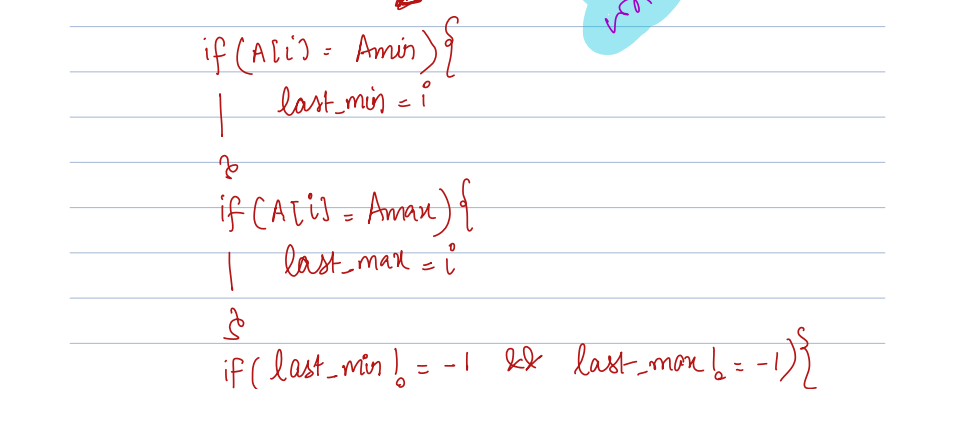 if (A[i] = Amin) {
| last_min = i
}
if (A[i] = Amax) {
| last_max = i
}
if ( last_min != -1 && last_max != -1) {